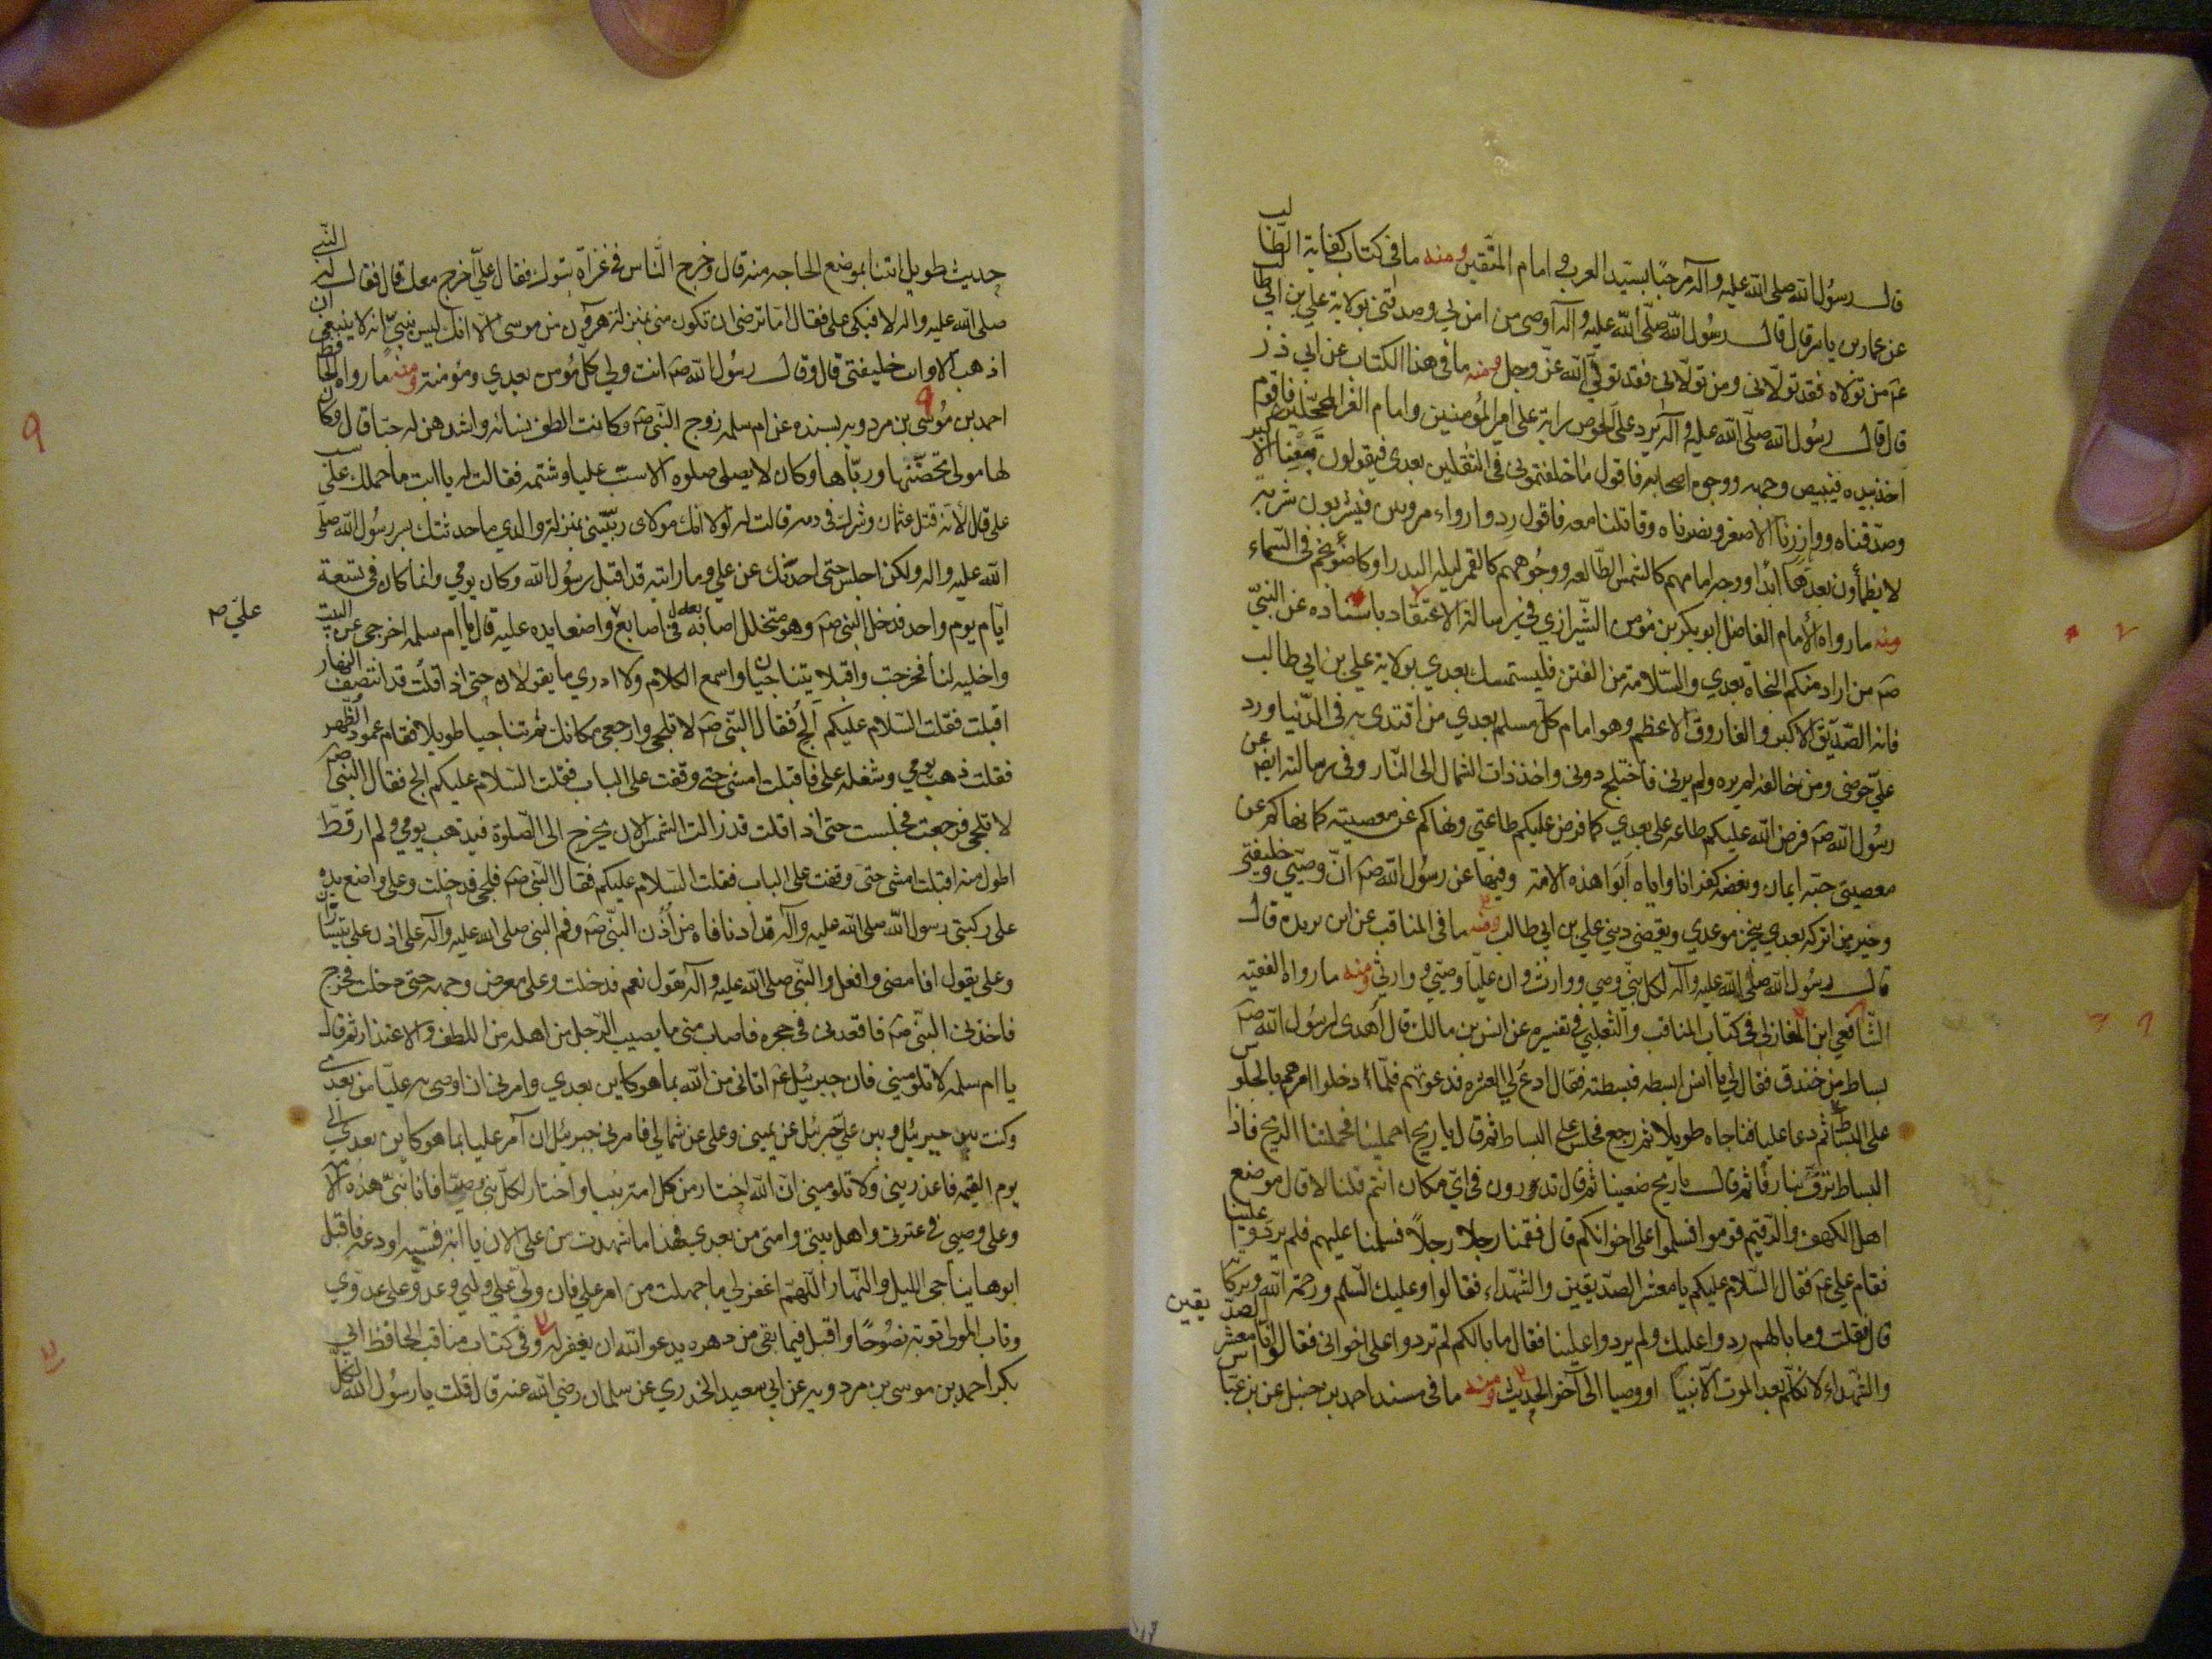 قال رسول الله صلى الله عليه وآله مرحبًا بسيد العرب وامام المتّقين ومنه ما فى كتاب كفاية الطالب
عن عمار بن ياسر قال قال رسول الله صلّى الله عليه وآله اوصى من امن بي وصدقنى بولاية علي بن ابي طالب
عم من تولاه فقد تولّانى ومن تولّانى فقد تولّى الله عزّ وجل ومنه ما فى هذا الكتاب عن ابي ذر
قال قال رسول الله صلّى الله عليه وآله ترد على الحوض راية على امير المؤمنين وامام الغر المحجّلين فاقوم
اخذ بيده فيبيض وجهه ووجوه اصحابه فاقول ما خلفتمونى فى الثقلين بعدى فيقولون تبعنا الاكبر
وصدّقناه ووازرنا الاصغر ونصرناه وقاتلنا معه فاقول ردوا رواء مرويين فيشربون شربة
لا يظمأون بعدها ابدًا ووجه امامهم كالشمس الطّالعه ووجوههم كالقمر ليله البدر او كاضوء نجم فى السّماء
ومنه ما رواه الامام الفاضل ابو بكر بن مؤمن الشّيرازي فى رسالة الاعتقاد باسناده عن النبيّ
صم من اراد منكم النجاة بعدي والسّلامة من الفتن فليستمسك بعدي بولاية علي بن ابي طالب
فانه الصّدّيق الاكبر والفاروق الاعظم وهو امام كلّ مسلم بعدي من اقتدى به فى الدّنيا ورد
عليّ حوضى ومن خالفه لم يره ولم يرنى فاختلج دونى واخذ ذات الشمال الى النّار وفى رسالته ايضا عن
رسول الله صم فرض الله عليكم طاعه على بعدي كما فرض عليكم طاعتي ونهاكم عن معصيته كما نهاكم عن
معصيتى حبّه ايمان وبغضه كفر انا واياه ابوا هذه الامة وفيها عن رسول الله صم انّ وصيّي وخليفتى
وخير من اتركه بعدي ينجز موعدي ويقضى ديني علي بن ابي طالب ومنه ما فى المناقب عن ابن بريده قال
قال رسول الله صلى الله عليه وآله لكل نبّى وصي ووارث وان عليّا وصيّي ووارثى ومنه ما رواه الفقيه
الشّافعي ابن المغازلي فى كتاب المناقب والثعلبي فى تفسيره عن انس بن مالك قال اهدى لرسول الله صم
بساط من خندق فقال لي يا انس ابسطه فبسطته فقال ادع لي العشره فدعوتهم فلمّا دخلوا امرهم بالجلوس
على البساط ثم دعا عليا فناجاه طويلا ثم رجع فجلس على البساط ثم قال يا ريح احملينا فحملتنا الريح فاذا
البساط تزفّ بنا زفًّا ثم قال يا ريح ضعينا ثم قال تدرون فى ايّ مكان انتم قلنا لا قال موضع
اهل الكهف والرقيم قوموا فسلموا على اخوانكم قال فقمنا رجلا رجلاً فسلمنا عليهم فلم يردّوا علينا
فقام علي عم فقال السّلام عليكم يا معشر الصدّيقين والشّهداء فقالوا وعليك السّلم ورحمة الله وبركاته
قال فقلت وما بالهم ردوا عليك ولم يردوا علينا فقال ما بالكم لم تردوا على اخوانى فقالوا انّا معشر الصدّيقين
والشّهداء لا نكلّم بعد الموت الّا نبيّا او وصيا الى آخر الحديث ومنه ما فى مسند احمد بن حنبل عن بن عبّاس
حديث طويل اتينا بموضع الحاجه منه قال وخرج النّاس فى غزاة تبوك فقال عليّ اخرج معك قال فقال له النّبى
صلى الله عليه واله لا فبكى على فقال اما ترضى ان تكون منى بمنزلة هرون من موسى الّا انك ليس نبيّ انه لا ينبغى ان
اذهب الا وانت خليفتى قال وقال رسول الله صم انت ولي كلّ مؤمن بعدي ومؤمنة ومنه ما رواه الحافظ
احمد بن موسى بن مردويه بسنده عن ام سلمه زوج النّبى صم وكانت الطف نسائه واشدهن له حبّا قال وكان
لها مولى تحضّنها وربّاها وكان لا يصلى صلوه الا سبّ عليا وشتمه فقالت له يا ابت ما حملك على سب
على قال لأنه قتل عثمان وشرك فى دمه قالت له لولا انك مولاى ربّيتنى بمنزلة والدي ما حدثتك بسر رسول الله صلّى
الله عليه واله ولكن اجلس حتى احدّثك عن علي وما رايته قد اقبل رسول الله وكان يومي وانما كان فى تسعة
ايّام يوم واحد فدخل النبى صم وهو متخلل اصابعه فى اصابع واضعا يده عليه قال يا ام سلمه اخرجى عن البيت
عليّ صم
واخليه لنا فخرجت واقبلا يتناجيان واسمع الكلام ولا ادري ما يقولان حتى اذا قلت قد انتصف النهار
اقبلت فقلت السّلام عليكم الج فقال النّبى صم لا تلجى وارجعى مكانك ثم تناجيا طويلا فقام عمود الظّهر
فقلت ذهب يومي وشغله على فاقبلت امشى حتى وقفت على الباب فقلت السّلام عليكم الج فقال النّبى صم
لا تلجى فرجعت فجلست حتى اذا قلت قد زالت الشمس الان يخرج الى الصّلوة فيذهب يومي ولم ار قطّ
اطول منه اقبلت امشى حتى وقفت على الباب فقلت السّلام عليكم فقال النّبى صم فلجى فدخلت وعلى واضع يده
على ركبتى رسول الله صلى الله عليه وآله قد ادنا فاه من اذن النبّى صم وفم النبى صلى الله عليه وآله على اذن على يتسارّان
وعلى يقول افامضى وافعل والنّبى صلى الله عليه وآله يقول نعم فدخلت وعلى معرض وجهه حتى دخلت فخرج
فاخذنى النّبى صم فاقعدنى فى حجره فاصاب منى ما يصيب الرّجل من اهله من اللطف والاعتذار ثم قال
يا ام سلمه لا تلومينى فان جبرئيل عم اتانى من الله بما هو كاين بعدي وامرنى ان اوصى به عليّا من بعدى
وكنت بين جبرئيل وبين عليّ جبرئيل عن يمينى وعلى عن شمالي فامرنى جبرئيل ان آمر عليا بما هو كاين بعدي الى
يوم القيمه فاعذرينى ولا تلومينى انّ الله اختار من كل امة نبيا واختار لكلّ نبى وصيّا فانا نبىّ هذه الامّة
وعلى وصيى فى عترتى واهل بيتى وامتى من بعدي فهذا ما شهدت من على الان يا ابته فسبه او دعه فاقبل
ابوها يناجى الليل والنّهار اللّهمّ اغفر لي ما جهلت من امر علي فان وليّ علي وليى وعدوّ على عدوّي
وتاب المولى توبة نصوحًا واقبل فيما بقى من دهره يدعو الله ان يغفر له وفى كتاب مناقب الحافظ ابي
بكر احمد بن موسى بن مردويه عن ابي سعيد الخدري عن سلمان رضى الله عنه قال قلت يا رسول الله لكلّ